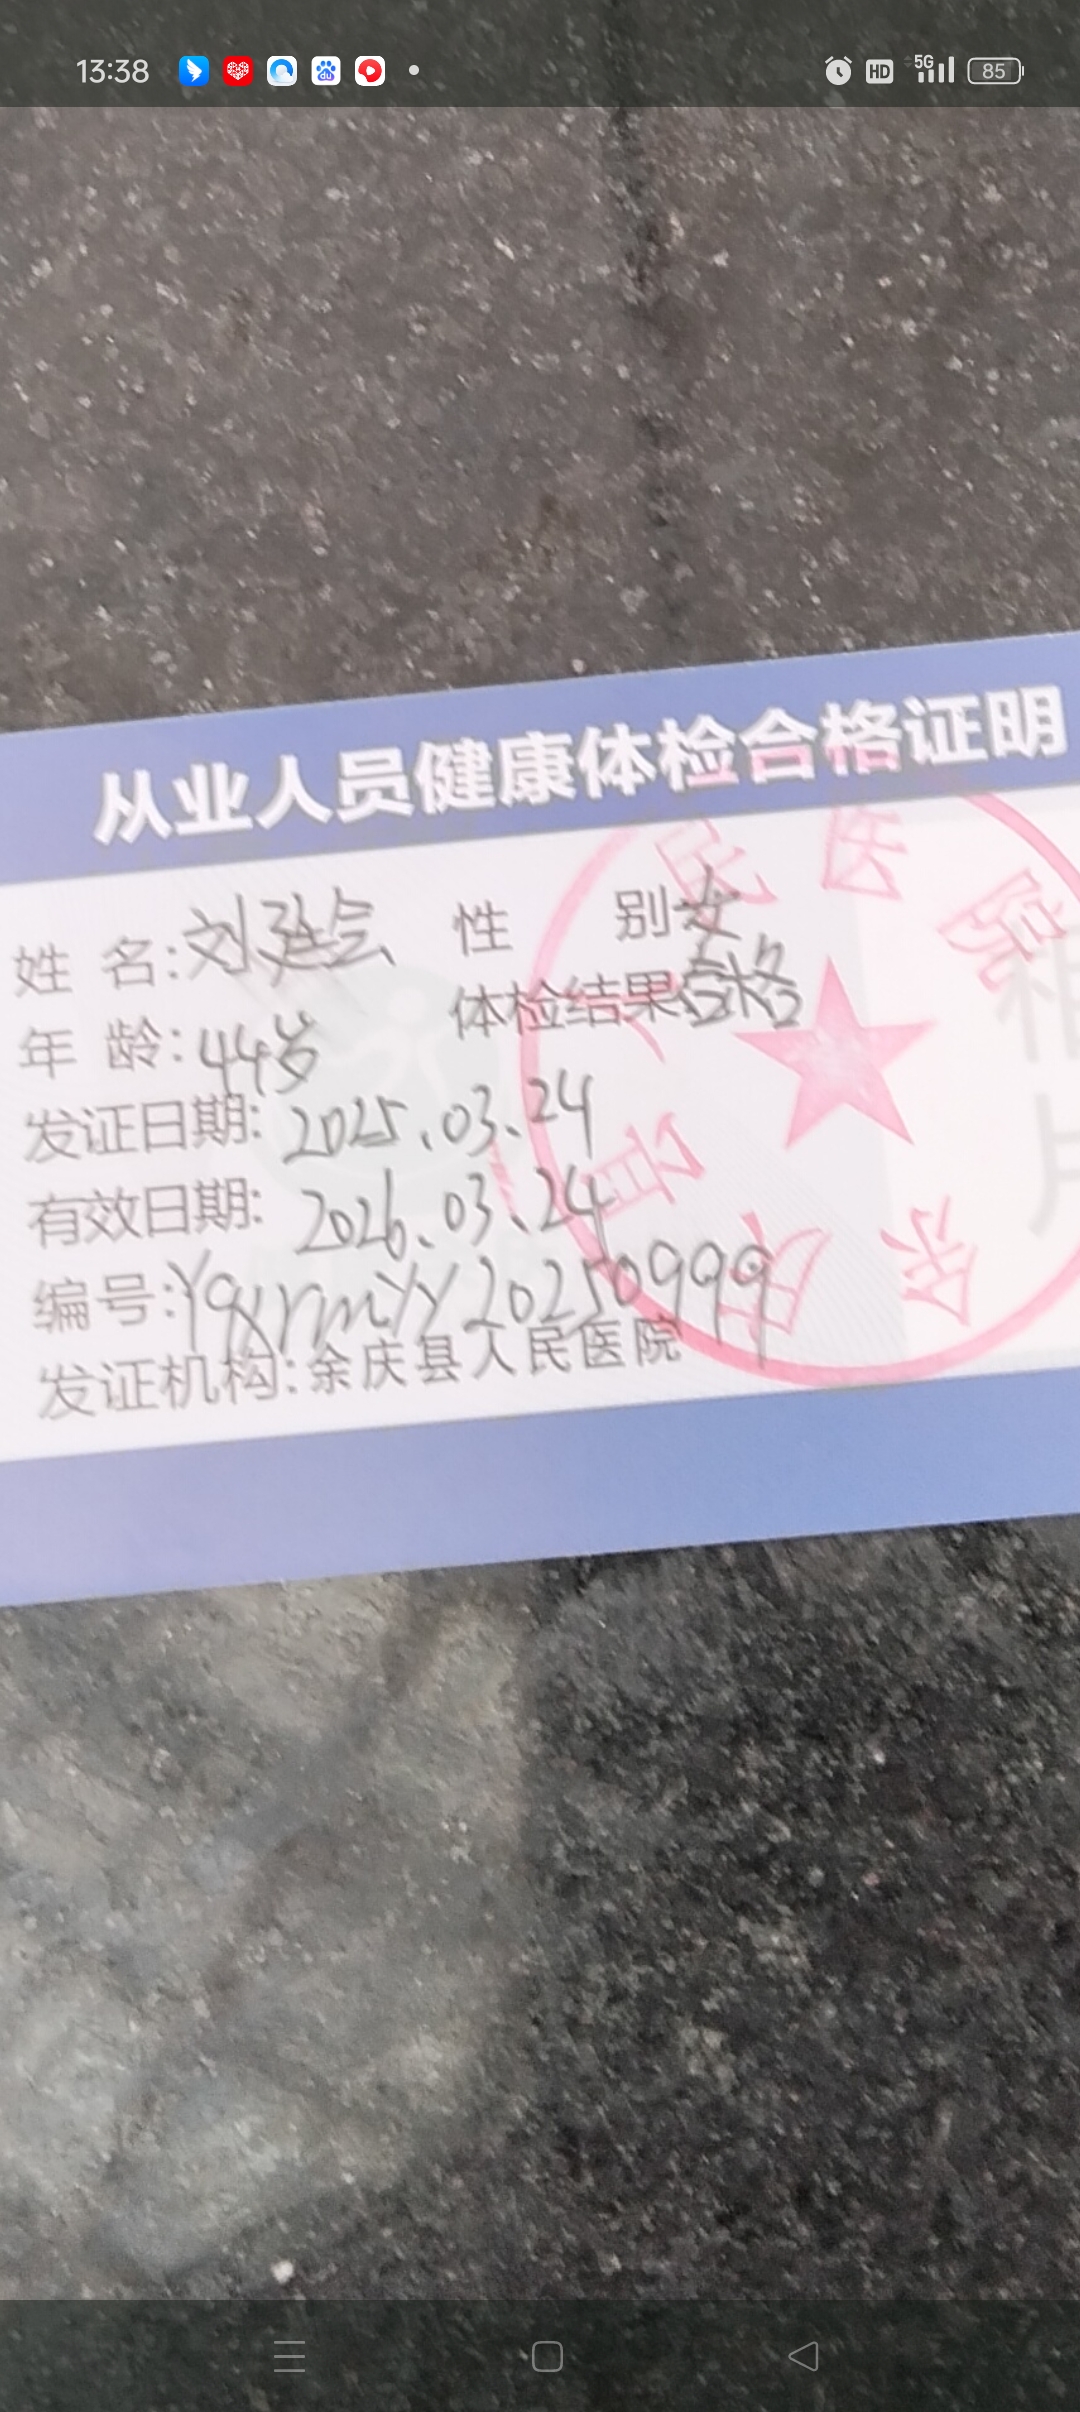 13:38 HD 5G 85
从业人员健康体检合格证明
姓 名:刘廷会 性 别女
年 龄:44岁 体检结果合格
发证日期: 2025.03.24
有效日期: 2026.03.24
编号:YqxrmYY20250999
发证机构:余庆县人民医院
相片
余庆县人民医院